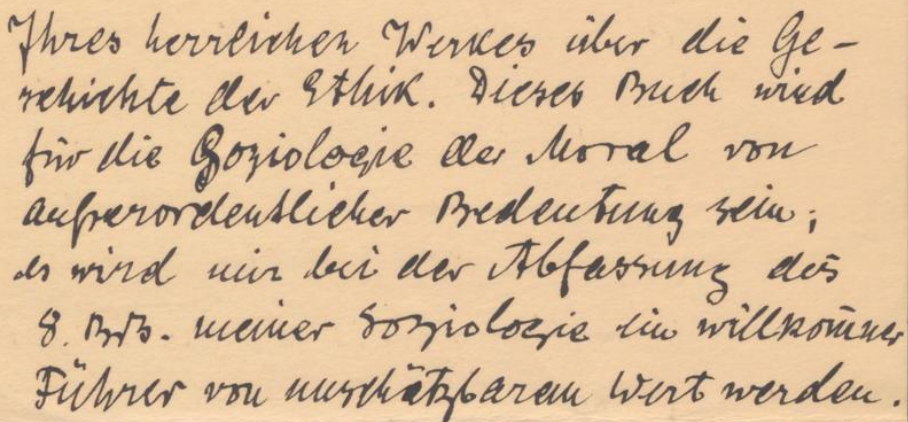 Ihres herrlichen Werkes über die Ge-
schichte der Ethik. Dieses Buch wird
für die Soziologie der Moral von
außerordentlicher Bedeutung sein;
es wird mir bei der Abfassung des
8. Bds. meiner Soziologie ein willkom̅ner
Führer von unschätzbarem Wert werden.